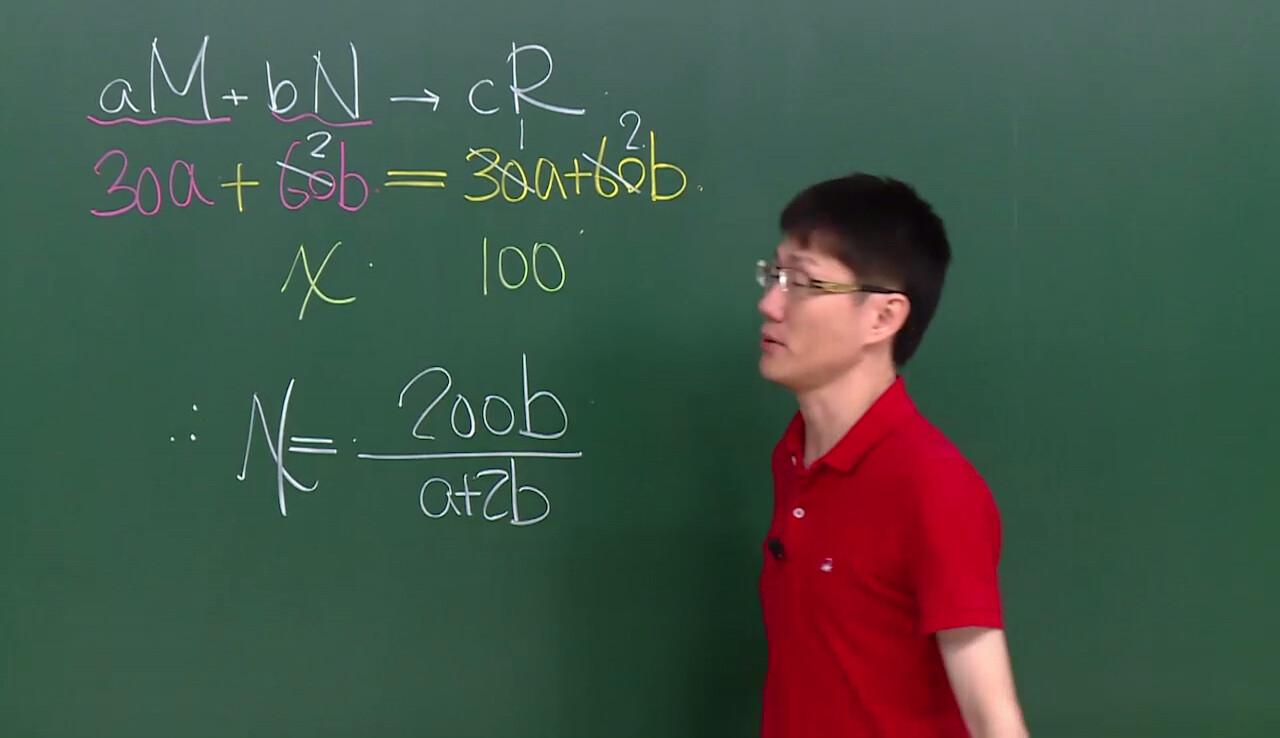 aM + bN → cR
30a + 60b = 30a+60b
2 1 2
x 100
∴ x = 200b / a+2b